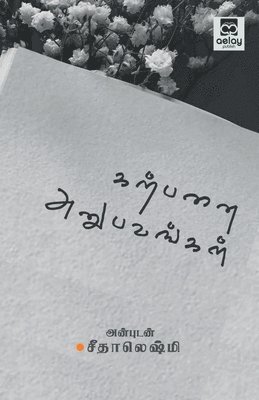 aelay
publish
கற்பனை
அனுபவங்கள்
அன்புடன்
சீதாலெஷ்மி